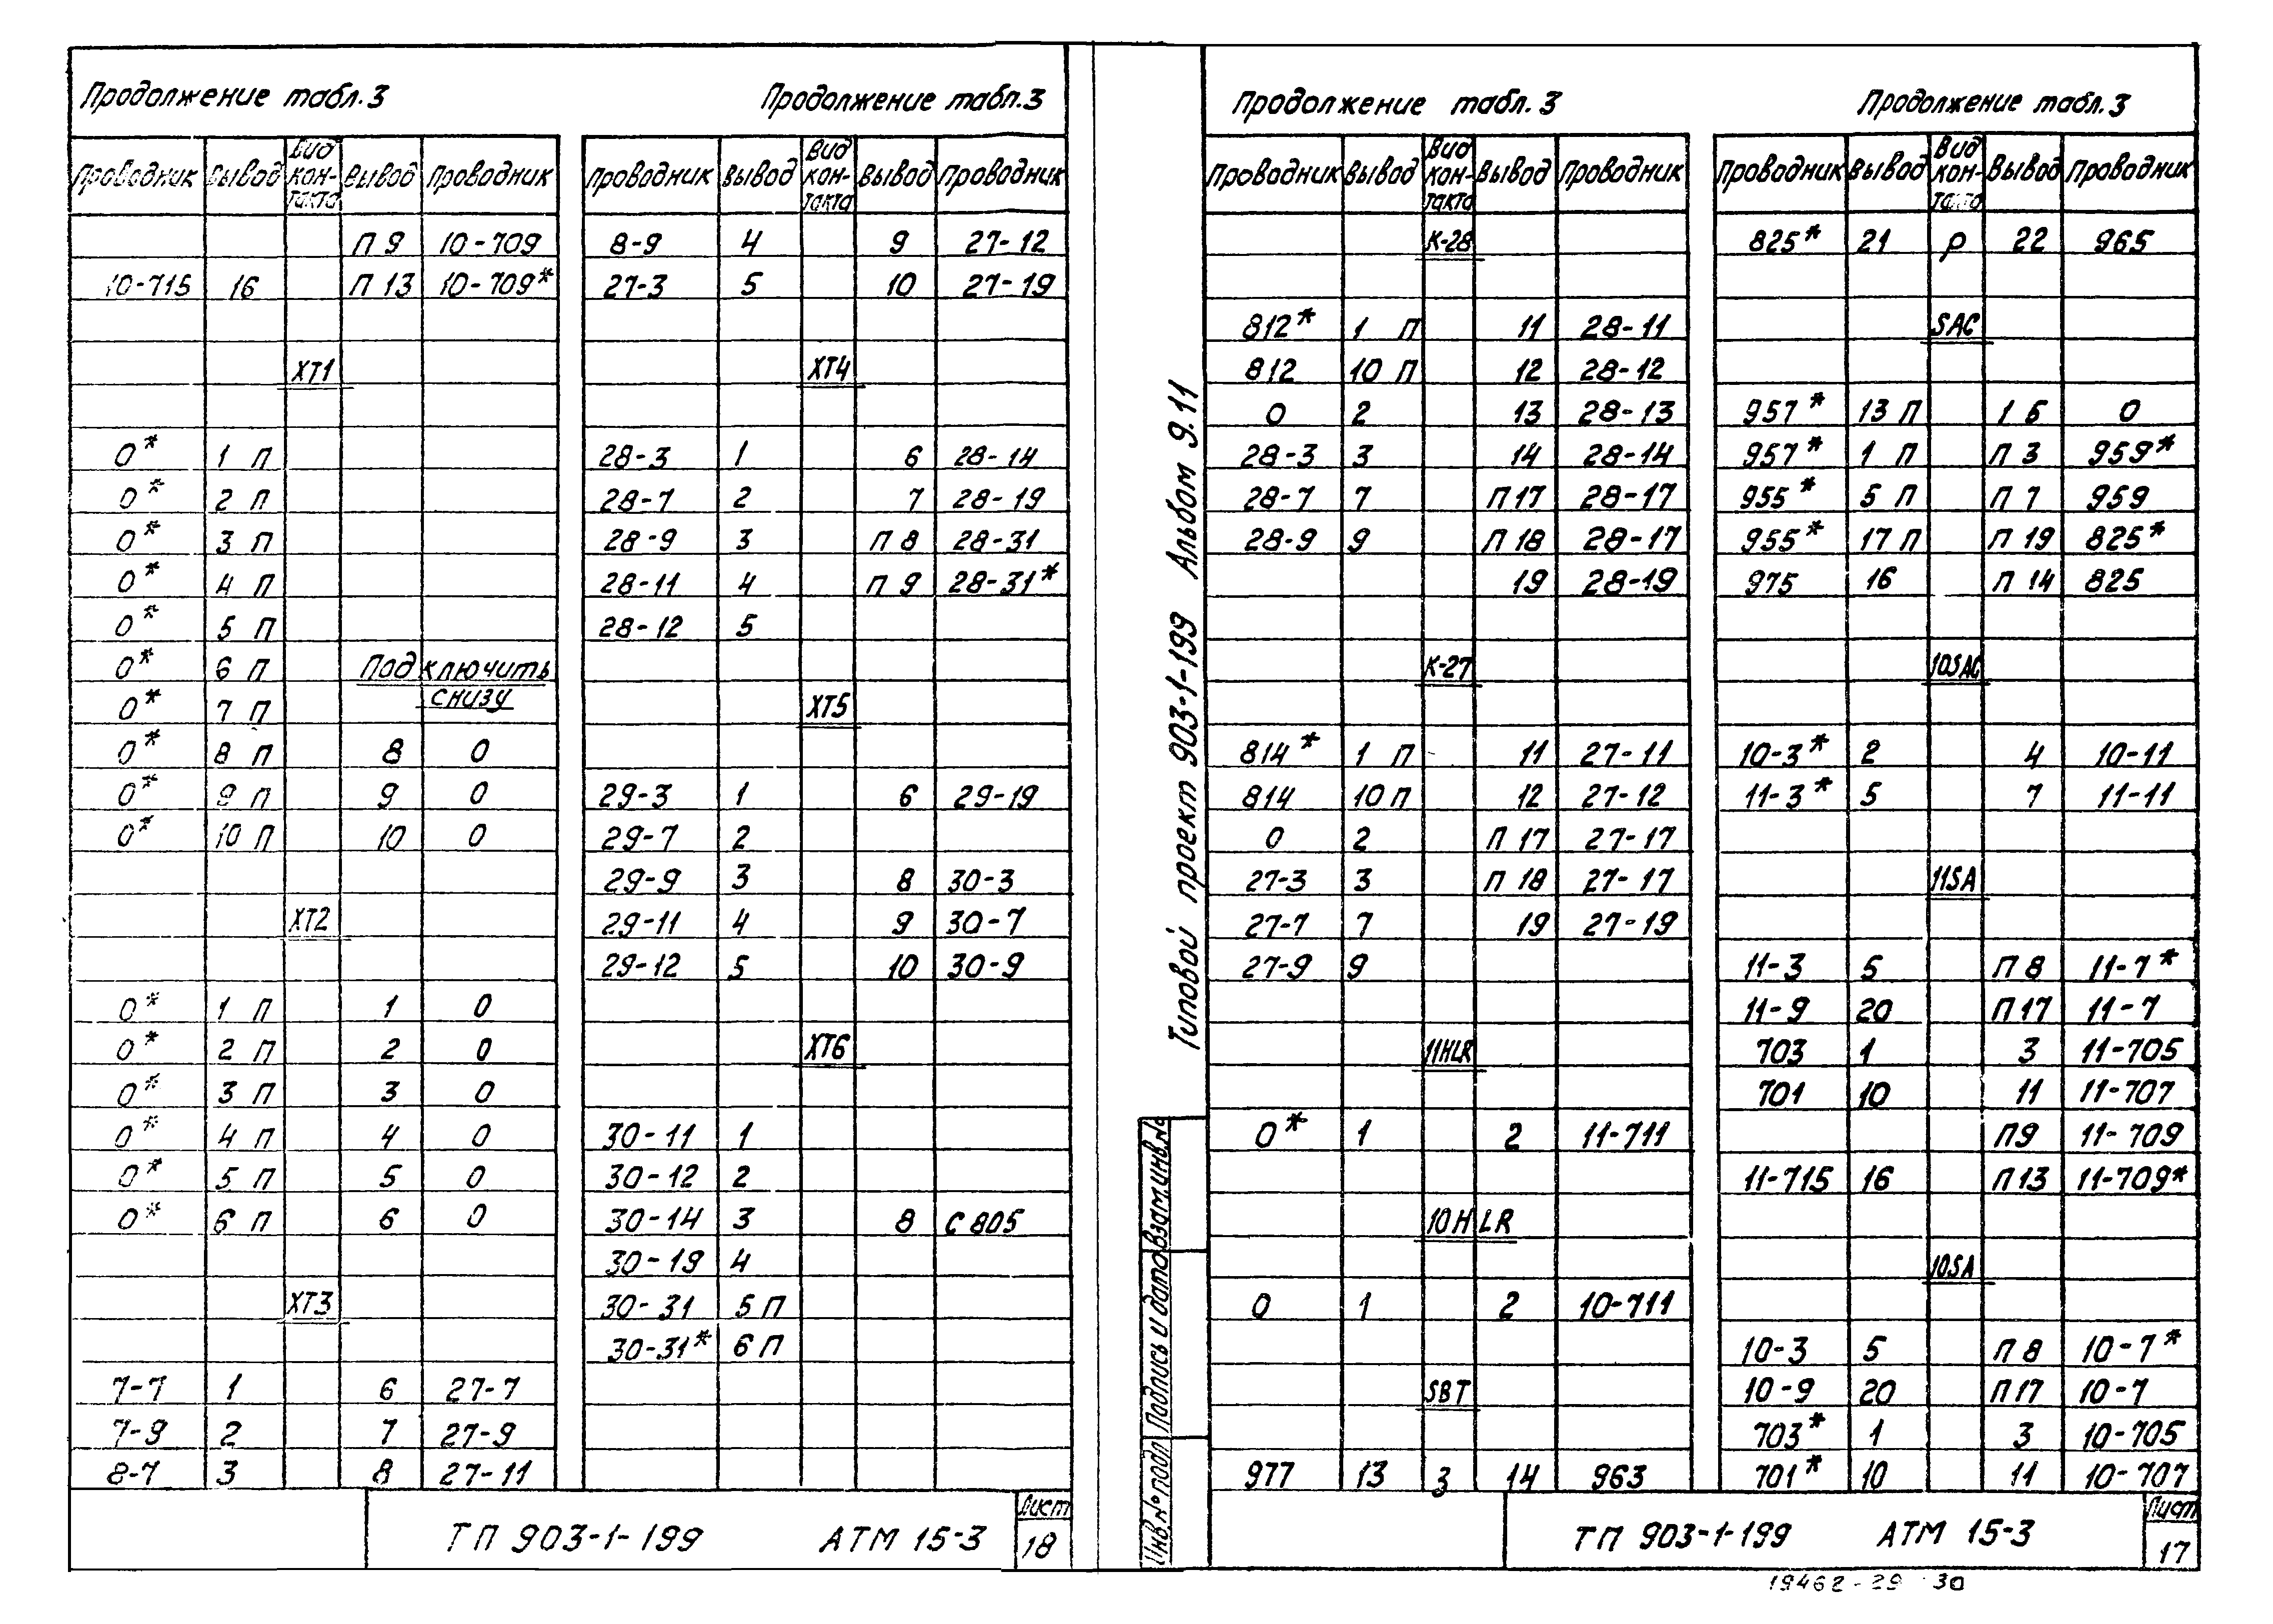 Продолжение табл.3
Проводник Вывод Вид кон-такта Вывод Проводник
П 9 10-709
10-715 16 П 13 10-709*
ХТ1
0* 1 П
0* 2 П
0* 3 П
0* 4 П
0* 5 П
0* 6 П Подключить
0* 7 П снизу
0* 8 П 8 0
0* 9 П 9 0
0* 10 П 10 0
ХТ2
0* 1 П 1 0
0* 2 П 2 0
0* 3 П 3 0
0* 4 П 4 0
0* 5 П 5 0
0* 6 П 6 0
ХТ3
7-7 1 6 27-7
7-9 2 7 27-9
8-7 3 8 27-11
Продолжение табл.3
Проводник Вывод Вид кон-такта Вывод Проводник
8-9 4 9 27-12
27-3 5 10 27-19
ХТ4
28-3 1 6 28-14
28-7 2 7 28-19
28-9 3 П 8 28-31
28-11 4 П 9 28-31*
28-12 5
ХТ5
29-3 1 6 29-19
29-7 2
29-9 3 8 30-3
29-11 4 9 30-7
29-12 5 10 30-9
ХТ6
30-11 1
30-12 2
30-14 3 8 С 805
30-19 4
30-31 5 П
30-31* 6 П
ТП 903-1-199 АТМ 15-3
Лист
18
Типовой проект 903-1-199 Альбом 9.11
Инв.№ подл Подпись и дата Взам.инв.№
Продолжение табл. 3
Проводник Вывод Вид кон-такта Вывод Проводник
К-28
812* 1 П 11 28-11
812 10 П 12 28-12
0 2 13 28-13
28-3 3 14 28-14
28-7 7 П 17 28-17
28-9 9 П 18 28-17
19 28-19
К-27
814* 1 П 11 27-11
814 10 П 12 27-12
0 2 П 17 27-17
27-3 3 П 18 27-17
27-7 7 19 27-19
27-9 9
11HLR
0* 1 2 11-711
10HLR
0 1 2 10-711
SBT
977 13 З 14 963
Продолжение табл.3
Проводник Вывод Вид кон-такта Вывод Проводник
825* 21 Р 22 965
SAC
957* 13 П 1 6 0
957* 1 П П 3 959*
955* 5 П П 7 959
955* 17 П П 19 825*
975 16 П 14 825
10SAC
10-3* 2 4 10-11
11-3* 5 7 11-11
11SA
11-3 5 П 8 11-7*
11-9 20 П 17 11-7
703 1 3 11-705
701 10 11 11-707
П9 11-709
11-715 16 П13 11-709*
10SA
10-3 5 П 8 10-7*
10-9 20 П 17 10-7
703* 1 3 10-705
701* 10 11 10-707
ТП 903-1-199 АТМ 15-3
Лист
17
19462-29 30